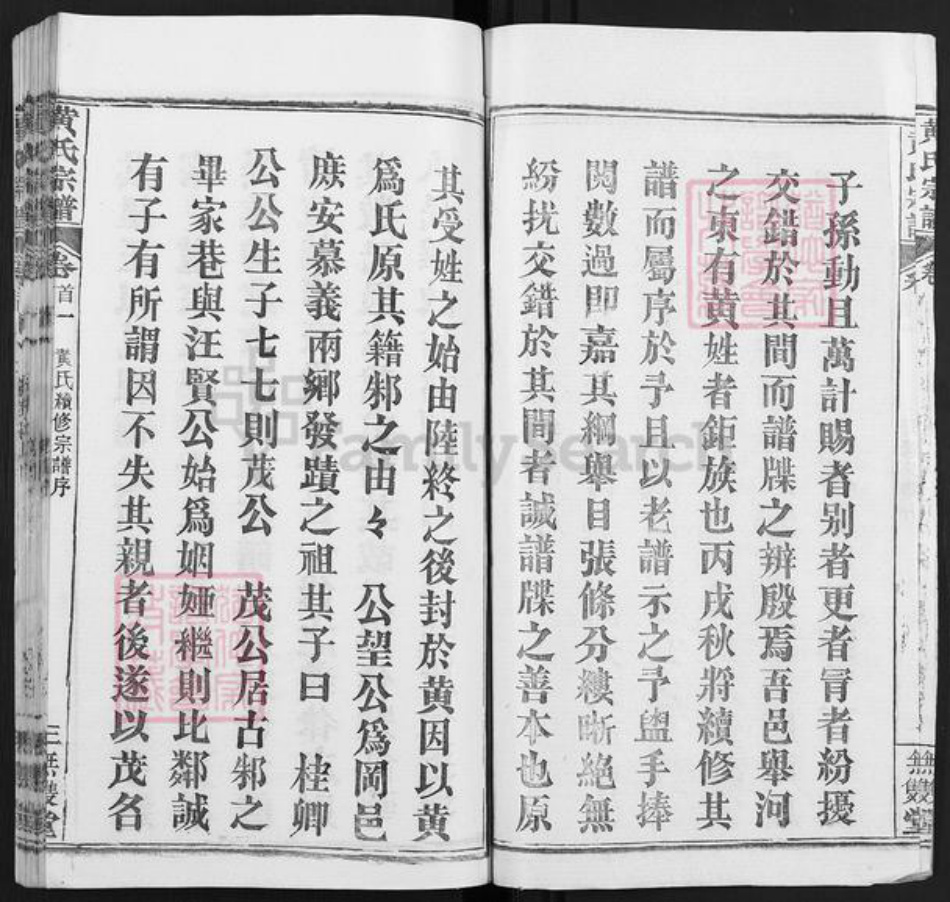 子孫動且萬計賜者別者更者冐者紛擾
交錯於其間而譜牒之辨殷焉吾邑舉河
之東有黄姓者鉅族也丙戌秋將續修其
譜而屬序於予且以老譜示之予盥手捧
閱數過即嘉其綱舉目張條分縷晰絕無
紛扰交錯於其間者誠譜牒之善本也原
其受姓之始由陸終之後封於黄因以黄
爲氏原其籍邾之由々 公望公爲岡邑
庶安慕義兩鄉發蹟之祖其子曰 桂卿
公公生子七七則茂公 茂公居古邾之
畢家巷與汪賢公始爲姻婭繼則比鄰誠
有子有所謂因不失其親者後遂以茂名
黄氏宗譜
卷首一
黄氏續修宗譜序
三
無雙堂
黄氏宗譜
卷
無雙堂
FamilySearch